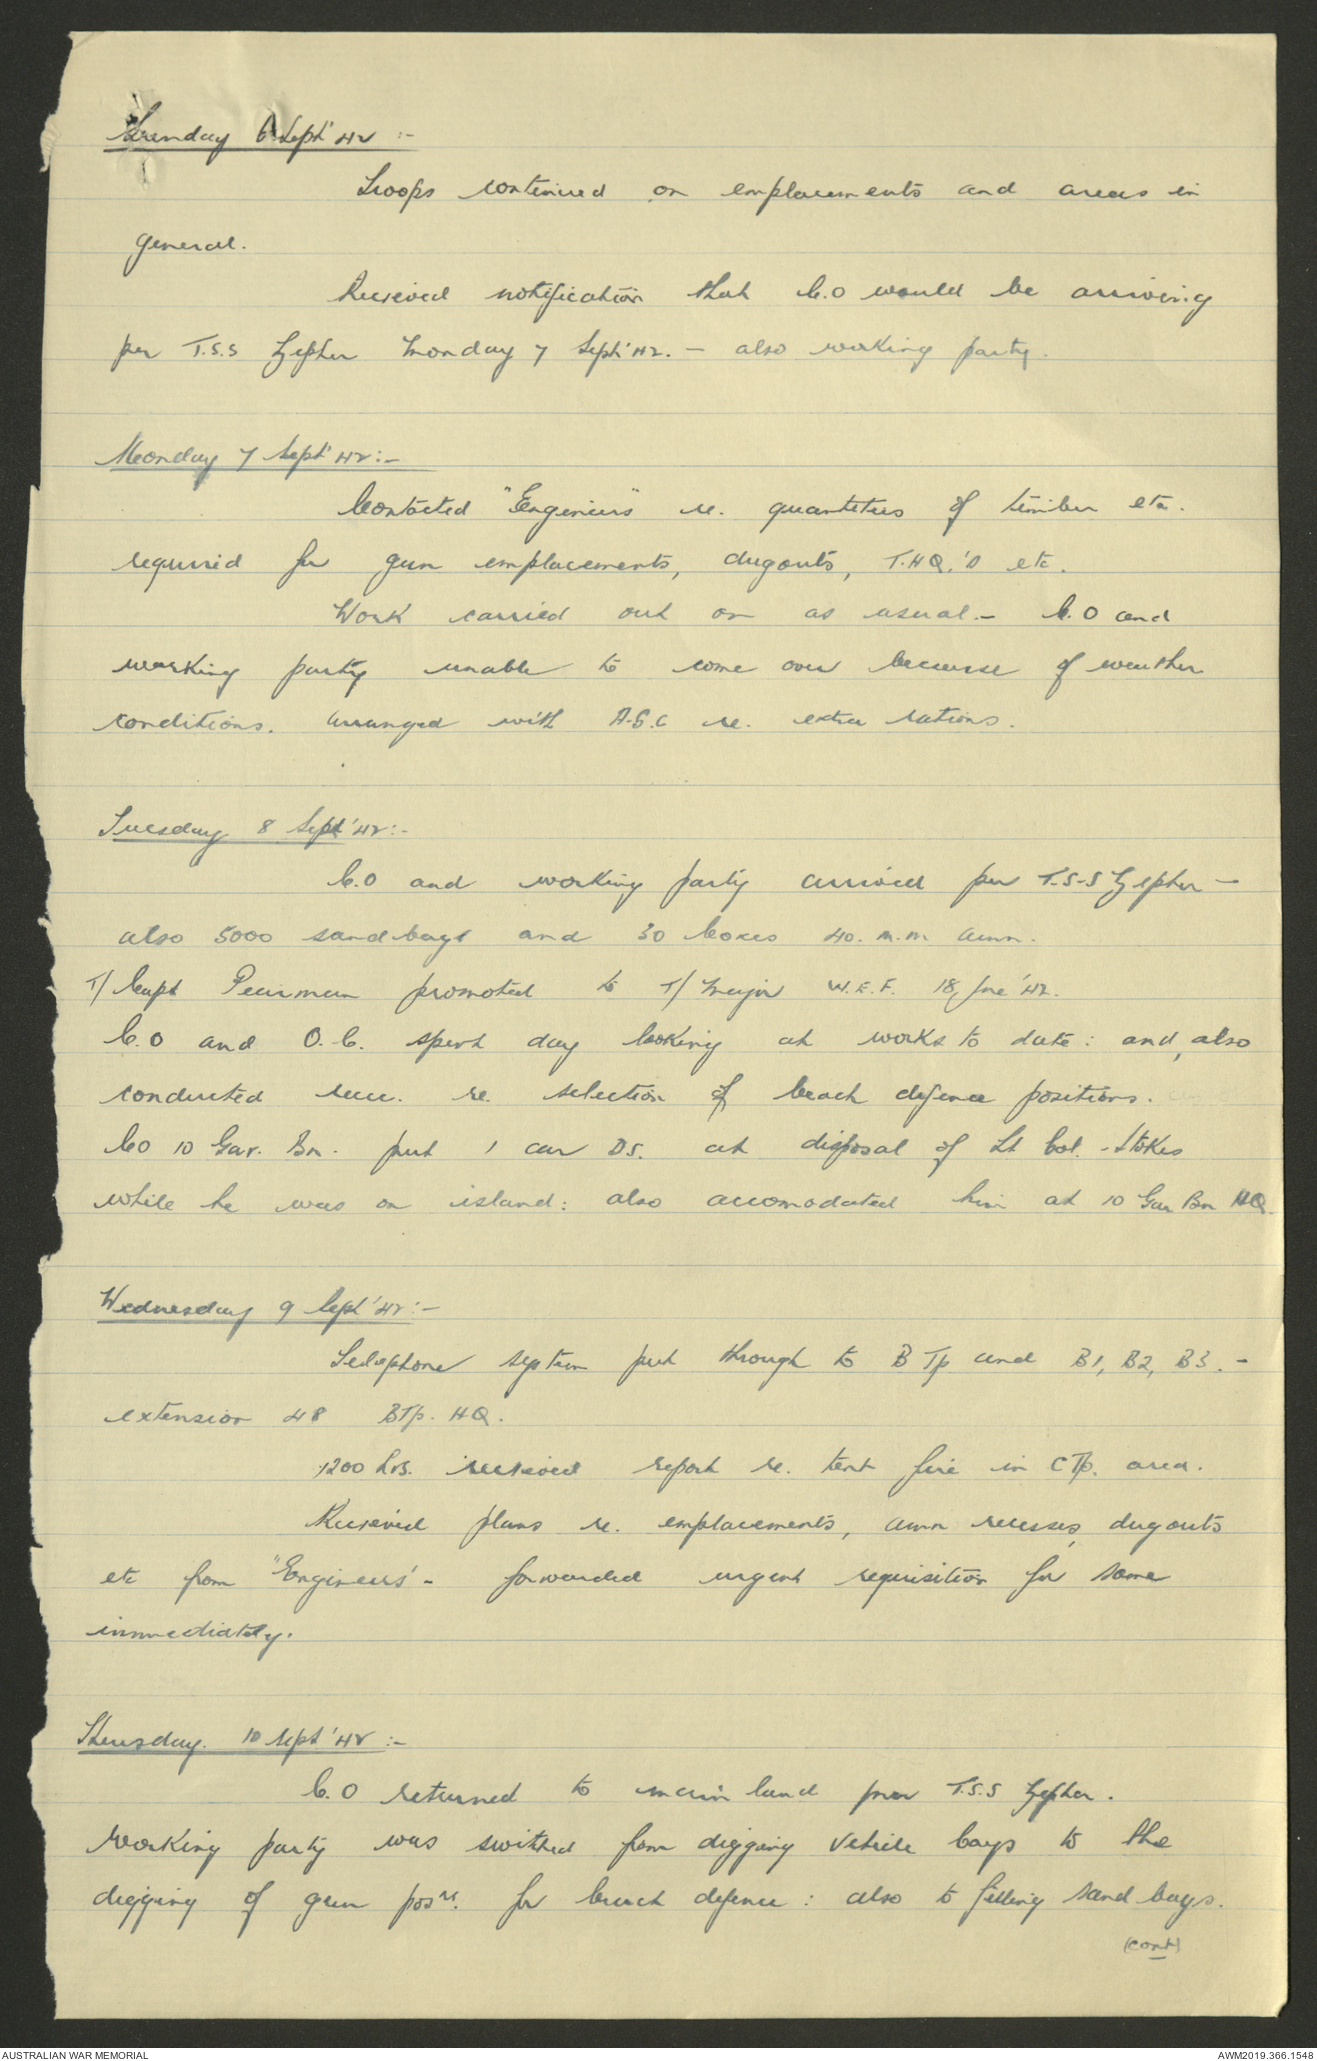 Sunday 6 Sept '42 :-
Troops continued on emplacements and areas in
general.
Received notification that C.O would be arriving
per T.S.S Zepher Monday 7 Sept '42. - also working party.
Monday 7 Sept '42:-
Contacted "Engineers" re. quantities of timber etc.
required for gun emplacements, dugouts, T.HQ.'s etc.
Work carried out on as usual.- C.O and
working party unable to come over because of weather
conditions. Arranged with A.S.C re. extra rations.
Tuesday 8 Sept '42:-
C.O and working party arrived per T.S.S Zepher -
also 5000 sandbags and 30 boxes 40. m.m amn.
T/ Capt Pearman promoted to T/ Major W.E.F. 18 June '42.
C.O and O.C. spent day looking at works to date: and, also
conducted recc. re. selection of beach defence positions.
CO 10 Gar. Bn. put 1 car DS. at disposal of Lt Col. Stokes
while he was on island: also accomodated him at 10 Gar Bn HQ.
Wednesday 9 Sept '42:-
Telephone system put through to B Tp and B1, B2, B3. -
extension 48 BTp. HQ.
1200 hrs. received report re. tent fire in C Tp. area.
Received plans re. emplacements, amn recesses, dugouts
etc from "Engineers' - forwarded urgent requisition for same
immediately.
Thursday. 10 Sept '42 :-
C.O returned to main land per T.S.S Zepher.
Working party was switched from digging vehicle bays to the
digging of gun posns. for beach defence : also to filling sand bags.
(cont)
AUSTRALIAN WAR MEMORIAL
AWM2019.366.1548